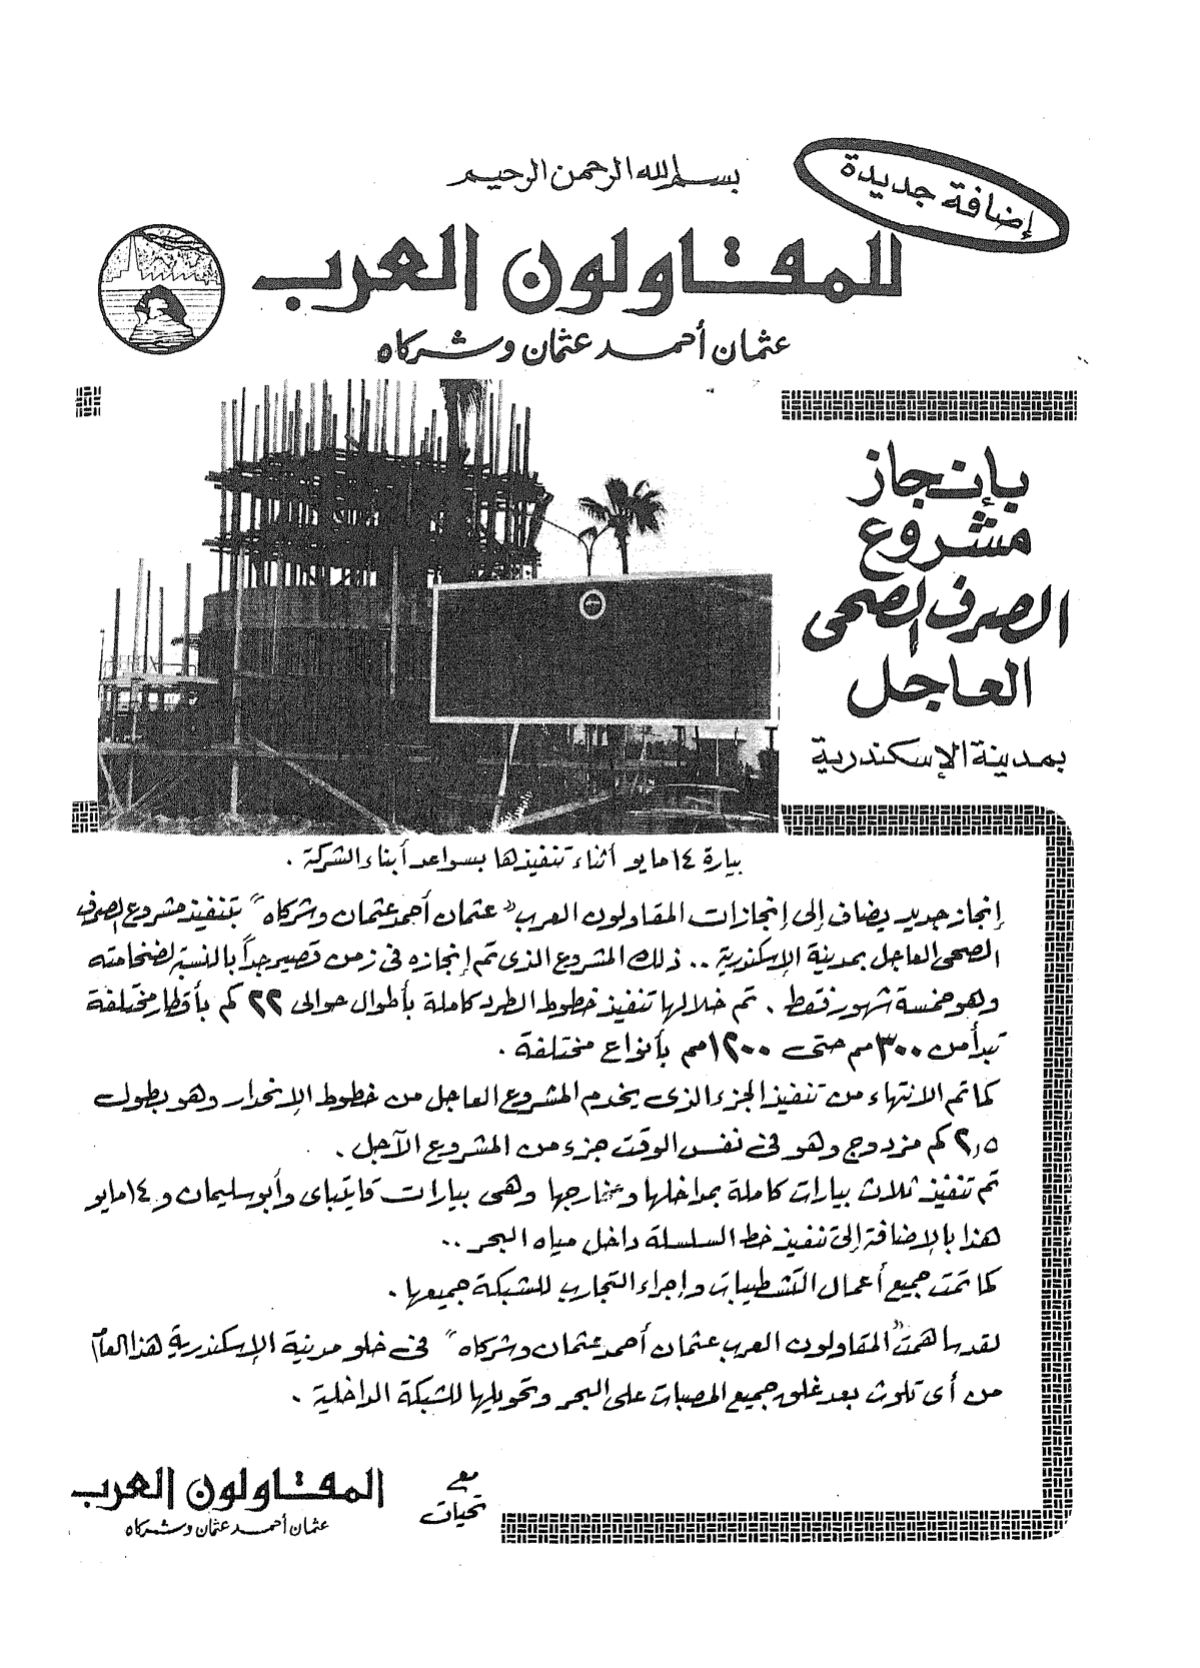 إضافة جديدة
بسم الله الرحمن الرحيم
للمقاولون العرب
عثمان أحمد عثمان وشركاه
بإنجاز
مشروع
الصرف الصحى
العاجل
بمدينة الإسكندرية
بيارة ١٤ مايو أثناء تنفيذها بسواعد أبناء الشركة .
إنجاز جديد يضاف إلى إنجازات المقاولون العرب "عثمان أحمد عثمان وشركاه" بتنفيذ مشروع الصرف
الصحى العاجل بمدينة الإسكندرية .. ذلك المشروع الذى تم إنجازه فى زمن قصير جداً بالنسبة لضخامته
وهو خمسة شهور فقط . تم خلالها تنفيذ خطوط الطرد كاملة بأطوال حوالى ٢٢ كم بأقطار مختلفة
تبدأ من ٣٠٠ مم حتى ١٢٠٠ مم بأنواع مختلفة .
كما تم الانتهاء من تنفيذ الجزء الذى يخدم المشروع العاجل من خطوط الإنحدار وهو بطول
٢,٥ كم مزدوج وهو فى نفس الوقت جزء من المشروع الآجل .
تم تنفيذ ثلاث بيارات كاملة بمداخلها ومخارجها وهى بيارات قايتباى وأبو سليمان و ١٤ مايو
هذا بالإضافة إلى تنفيذ خط السلسلة داخل مياه البحر ..
كما تمت جميع أعمال التشطيبات وإجراء التجارب للشبكة جميعها .
لقد ساهمت "المقاولون العرب عثمان أحمد عثمان وشركاه" فى خلو مدينة الإسكندرية هذا العام
من أى تلوث بعد غلق جميع المصبات على البحر وتحويلها للشبكة الداخلية .
مع
تحيات
المقاولون العرب
عثمان أحمد عثمان وشركاه